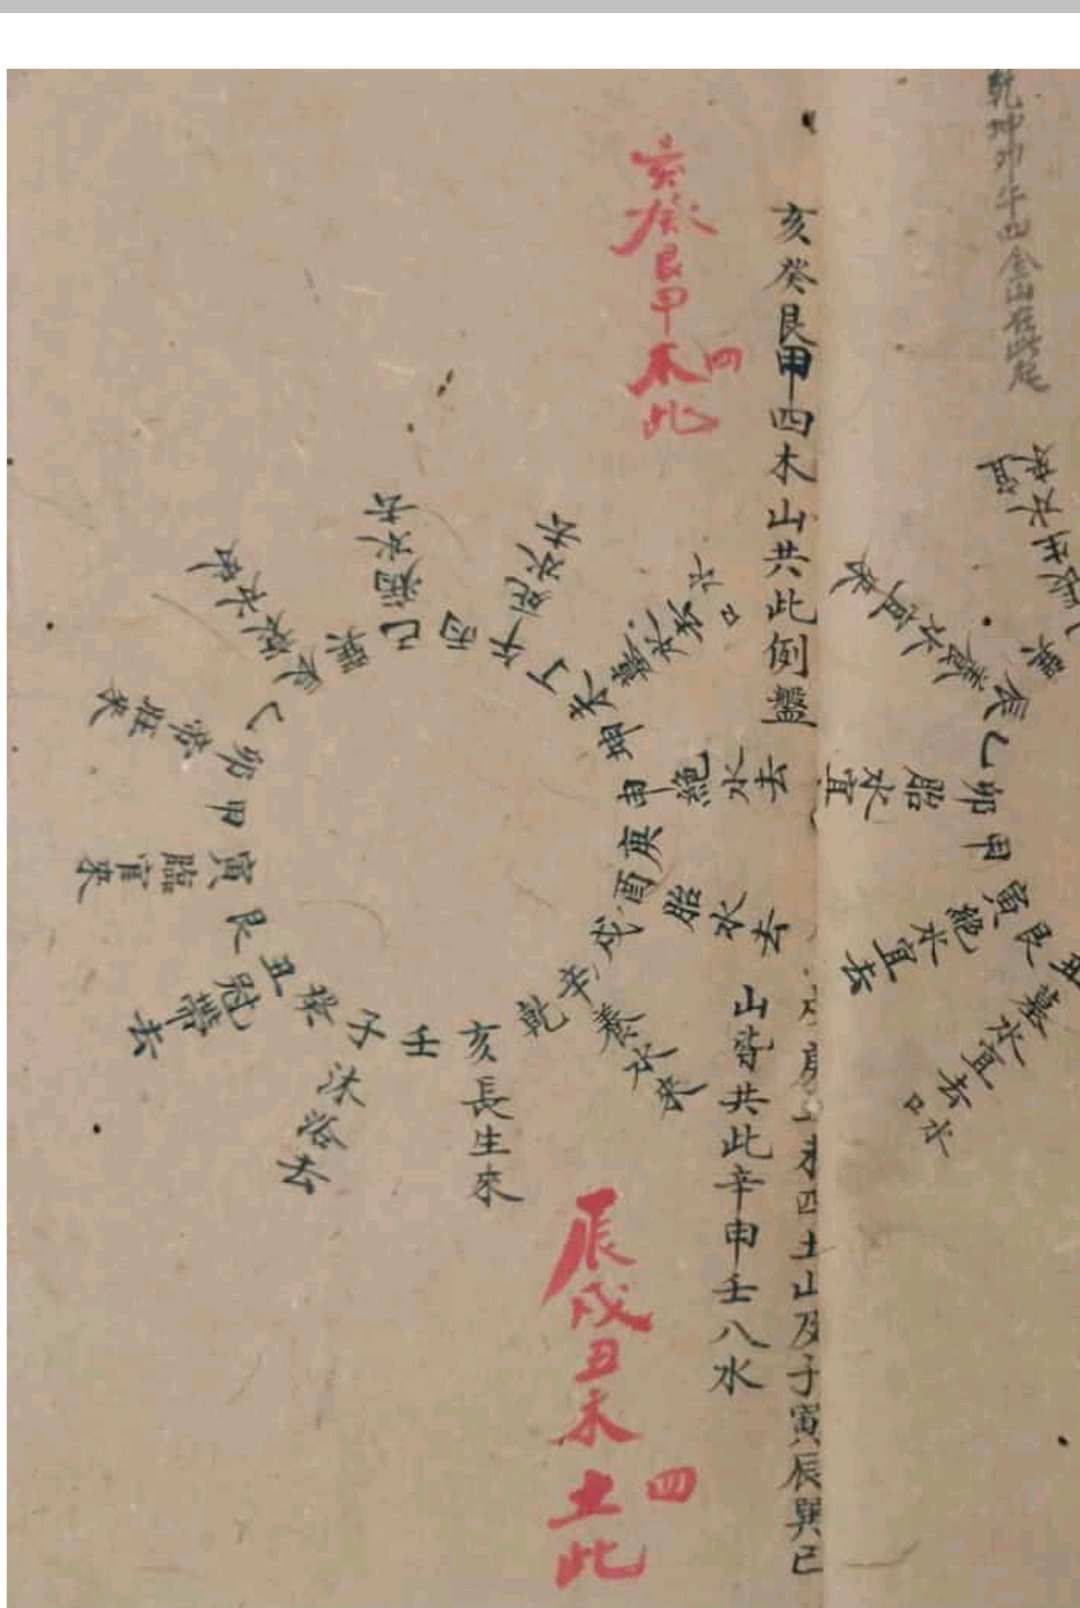 乾坤卯午四金山在此起
亥癸艮甲四木山共此例盤
亥癸艮甲四木此
水口
墓水去
未
坤
申
絕水去
庚
酉
胎水去
戌
辛
養水來
乾
亥
長生來
壬
子
沐浴去
癸
丑
冠帶去
艮
寅
臨官來
甲
卯
帝旺來
乙
辰
衰水來
巽
巳
病水去
丙
午
死水去
丁
巽
辰
養水宜來
乙
卯
胎水宜
甲
寅
絕水宜去
艮
丑
墓水宜去
水口
生水宜來
丑未四土山及子寅辰巽巳
山皆共此辛申壬八水
辰戌丑未四土此